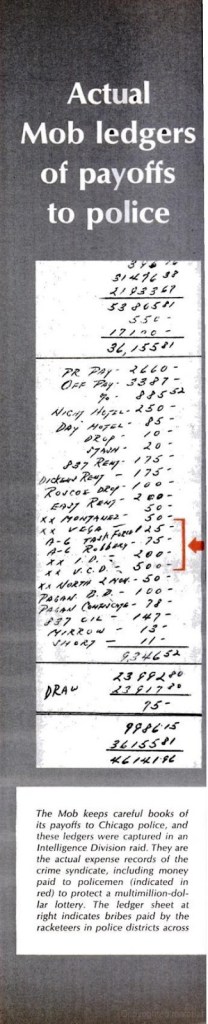 Actual
Mob ledgers
of payoffs
to police
3147638
2193367
5380581
550-
17100-
36,15581
PR PAY - 2660-
OFF PAY - 3387-
% - 88552
NIGHT HOTEL - 250-
DAY HOTEL - 85-
DROP - 10-
STASH - 20-
837 RENT - 175-
DICKENS RENT - 175-
ROSCOE DRY - 100-
EASY RENT - 200-
XX MONTANEZ - 50-
XX VEGA - 125-
A-6 TASK FORCE
A-6 ROBBERY - 75-
XX I.D. - 200-
XX V.C.D. - 500-
XX NORTH 2 MEN - 50-
PAGAN B.D. - 100-
PAGAN - 78-
837 OIL - 147-
MIRROW - 13-
SHORT - 11-
934652
2399280
DRAW 2391780
75-
998615
3615581
4614196
The Mob keeps careful books of
its payoffs to Chicago police, and
these ledgers were captured in an
Intelligence Division raid. They are
the actual expense records of the
crime syndicate, including money
paid to policemen (indicated in
red) to protect a multimillion-dol-
lar lottery. The ledger sheet at
right indicates bribes paid by the
racketeers in police districts across